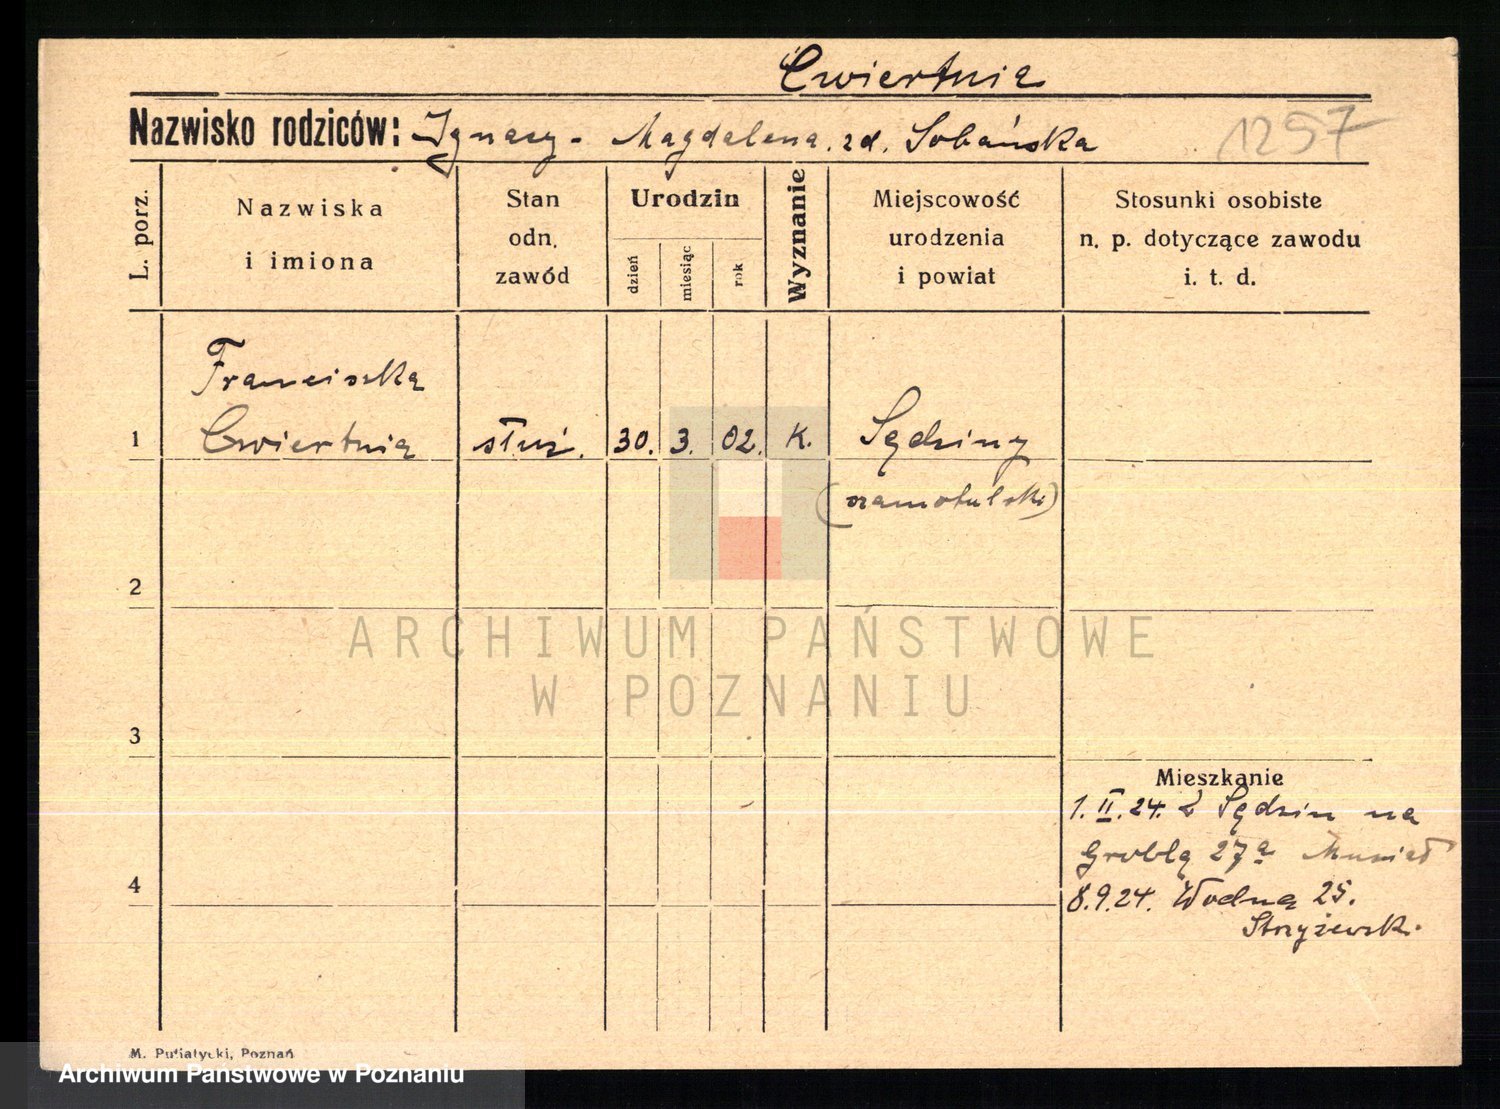 Ćwiertnia
Nazwisko rodziców: Ignacy - Magdalena. zd. Sobańska
1297
L. porz.
Nazwiska
i imiona
Stan
odn.
zawód
Urodzin
dzień
miesiąc
rok
Wyznanie
Miejscowość
urodzenia
i powiat
Stosunki osobiste
n. p. dotyczące zawodu
i. t. d.
Franciszka
1 Ćwiertnia służ. 30. 3. 02. K. Sędziny
(szamotulski)
2
ARCHIWUM PAŃSTWOWE
W POZNANIU
3
Mieszkanie
1. II. 24. z Sędzin na
Groblą 27a
4
8.9.24. Wodna 25.
Strzyżewski
M. Putiatycki, Poznań
Archiwum Państwowe w Poznaniu